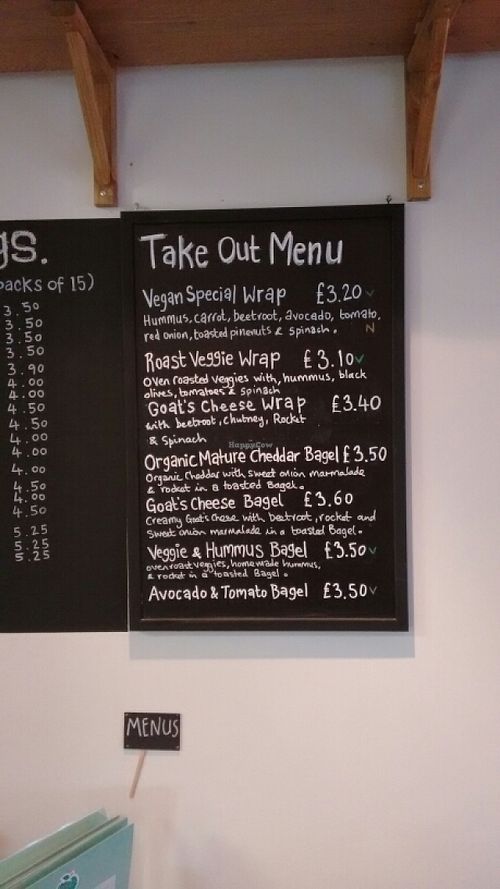 gs.
packs of 15)
3.50
3.50
3.50
3.50
3.90
4.00
4.00
4.50
4.50
4.00
4.00
4.00
4.50
4.00
4.50
5.25
5.25
5.25
Take Out Menu
Vegan Special Wrap £3.20 v
Hummus, carrot, beetroot, avocado, tomato,
red onion, toasted pinenuts & spinach. N
Roast Veggie Wrap £3.10 v
Oven roasted veggies with, hummus, black
olives, tomatoes & spinach
Goat's Cheese Wrap £3.40
with beetroot, chutney, Rocket
& Spinach
HappyCow
Organic Mature Cheddar Bagel £3.50
Organic Cheddar with sweet onion marmalade
& rocket in a toasted Bagel.
Goat's Cheese Bagel £3.60
Creamy Goat's Cheese with beetroot, rocket and
Sweet onion marmalade in a toasted Bagel.
Veggie & Hummus Bagel £3.50 v
oven roast veggies, homemade hummus,
& rocket in a toasted Bagel.
Avocado & Tomato Bagel £3.50 v
MENUS